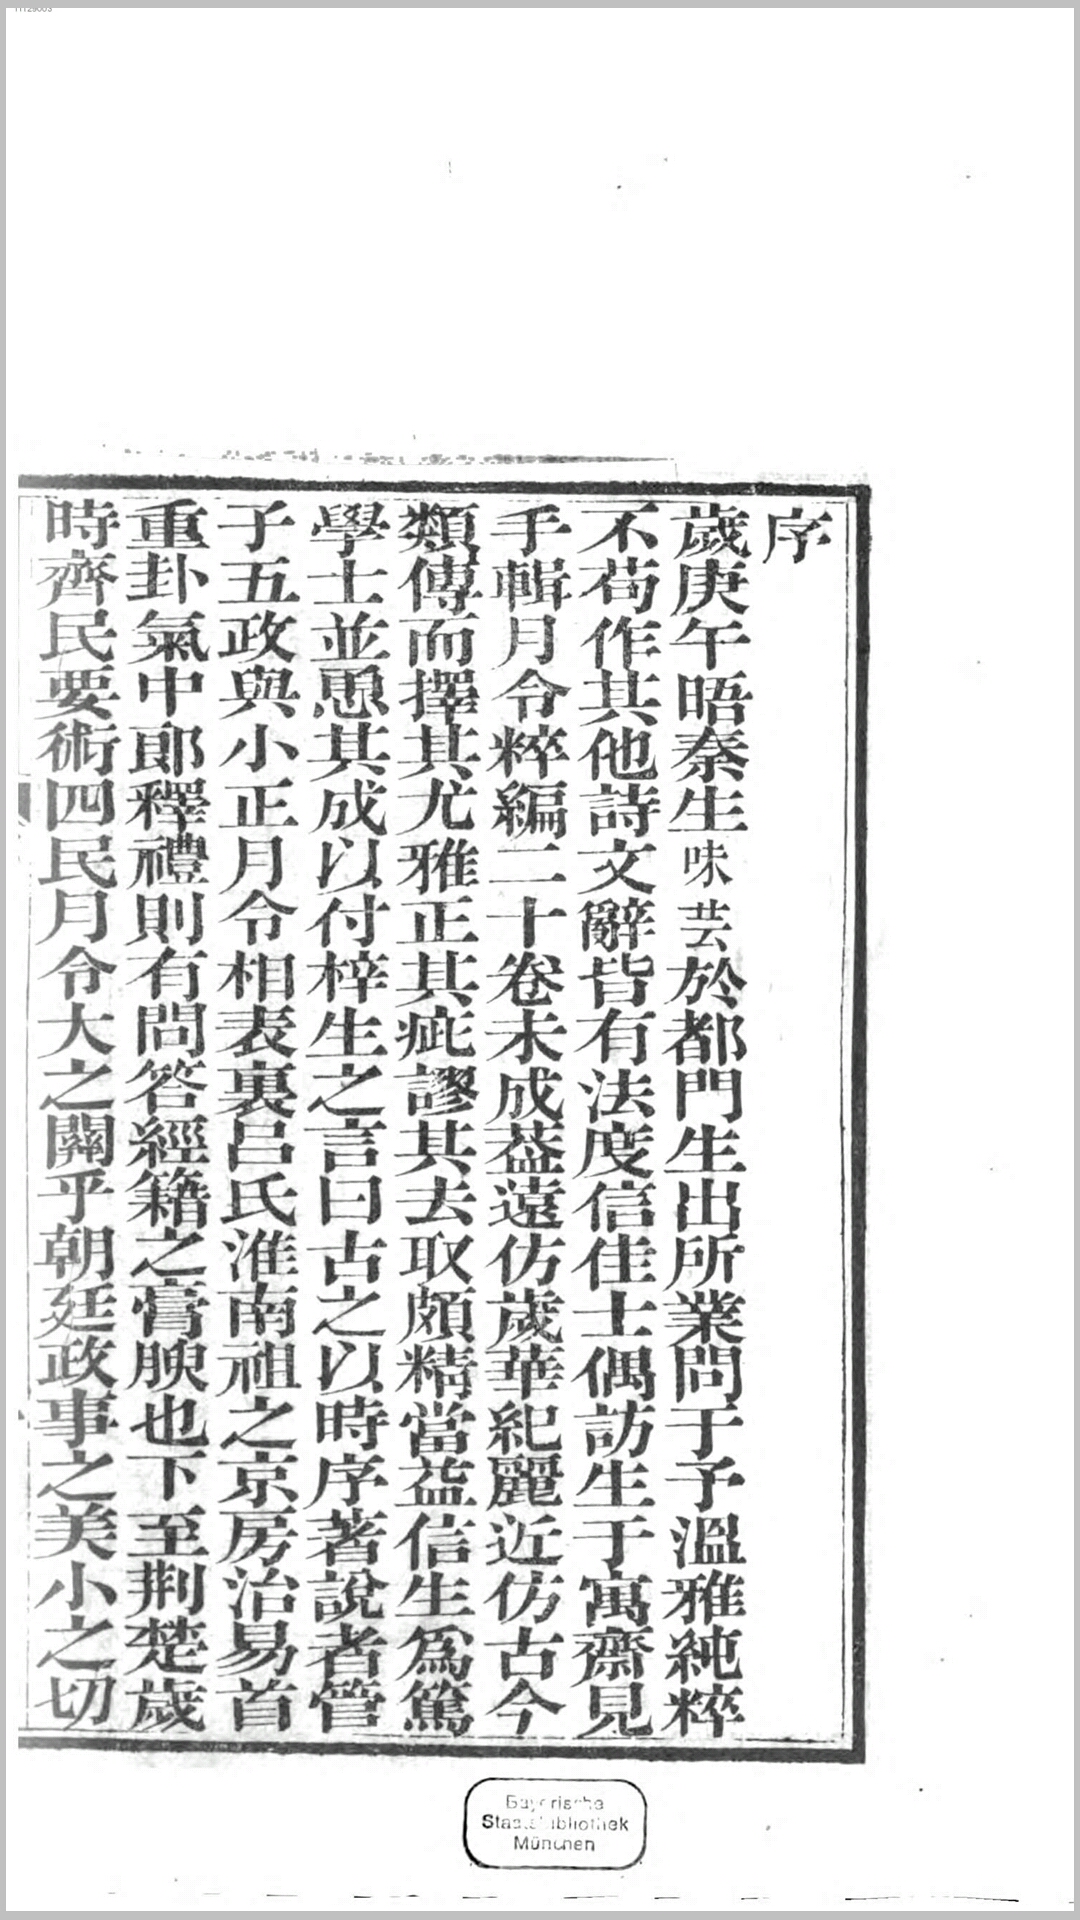 序
歲庚午晤秦生味芸於都門生出所業問于予溫雅純粹
不苟作其他詩文辭皆有法度信佳士偶訪生于寓齋見
手輯月令粹編二十卷未成葢遠仿歲華紀麗近仿古今
類傳而擇其尤雅正其疵謬其去取頗精當益信生爲篤
學士並慂其成以付梓生之言曰古之以時序著說者管
子五政與小正月令相表裏呂氏淮南祖之京房治易首
重卦氣中郎釋禮則有問答經籍之膏腴也下至荆楚歲
時齊民要術四民月令大之關乎朝廷政事之美小之切
Bayerische
Staatsbibliothek
München